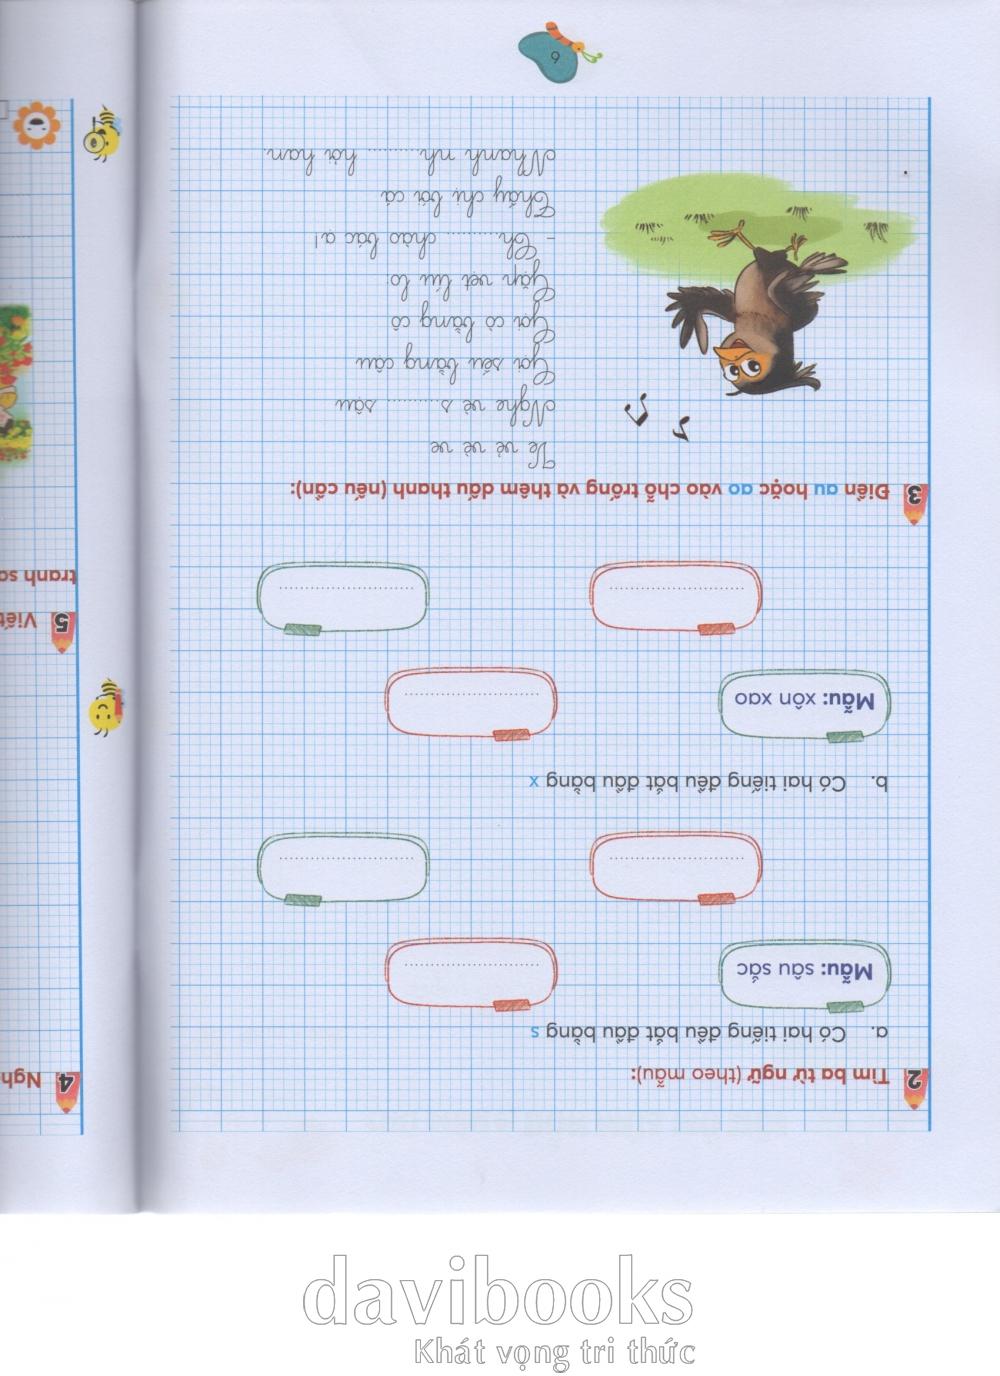 2 Tìm ba từ ngữ (theo mẫu):
a. Có hai tiếng đều bắt đầu bằng s
Mẫu: sâu sắc
....................
....................
....................
b. Có hai tiếng đều bắt đầu bằng x
Mẫu: xôn xao
....................
....................
....................
3 Điền au hoặc ao vào chỗ trống và thêm dấu thanh (nếu cần):
Ve vẻ vè ve
Nghe vè s.......... sậu
Gọi sếu bằng cậu
Gọi cò bằng cô
Gặp vẹt líu lo:
- Ch.......... chào bác ạ!
Thấy chị bói cá
Nhanh nh.......... hỏi han.
6
4 Ngh
5 Viết
tranh sa
davibooks
Khát vọng tri thức